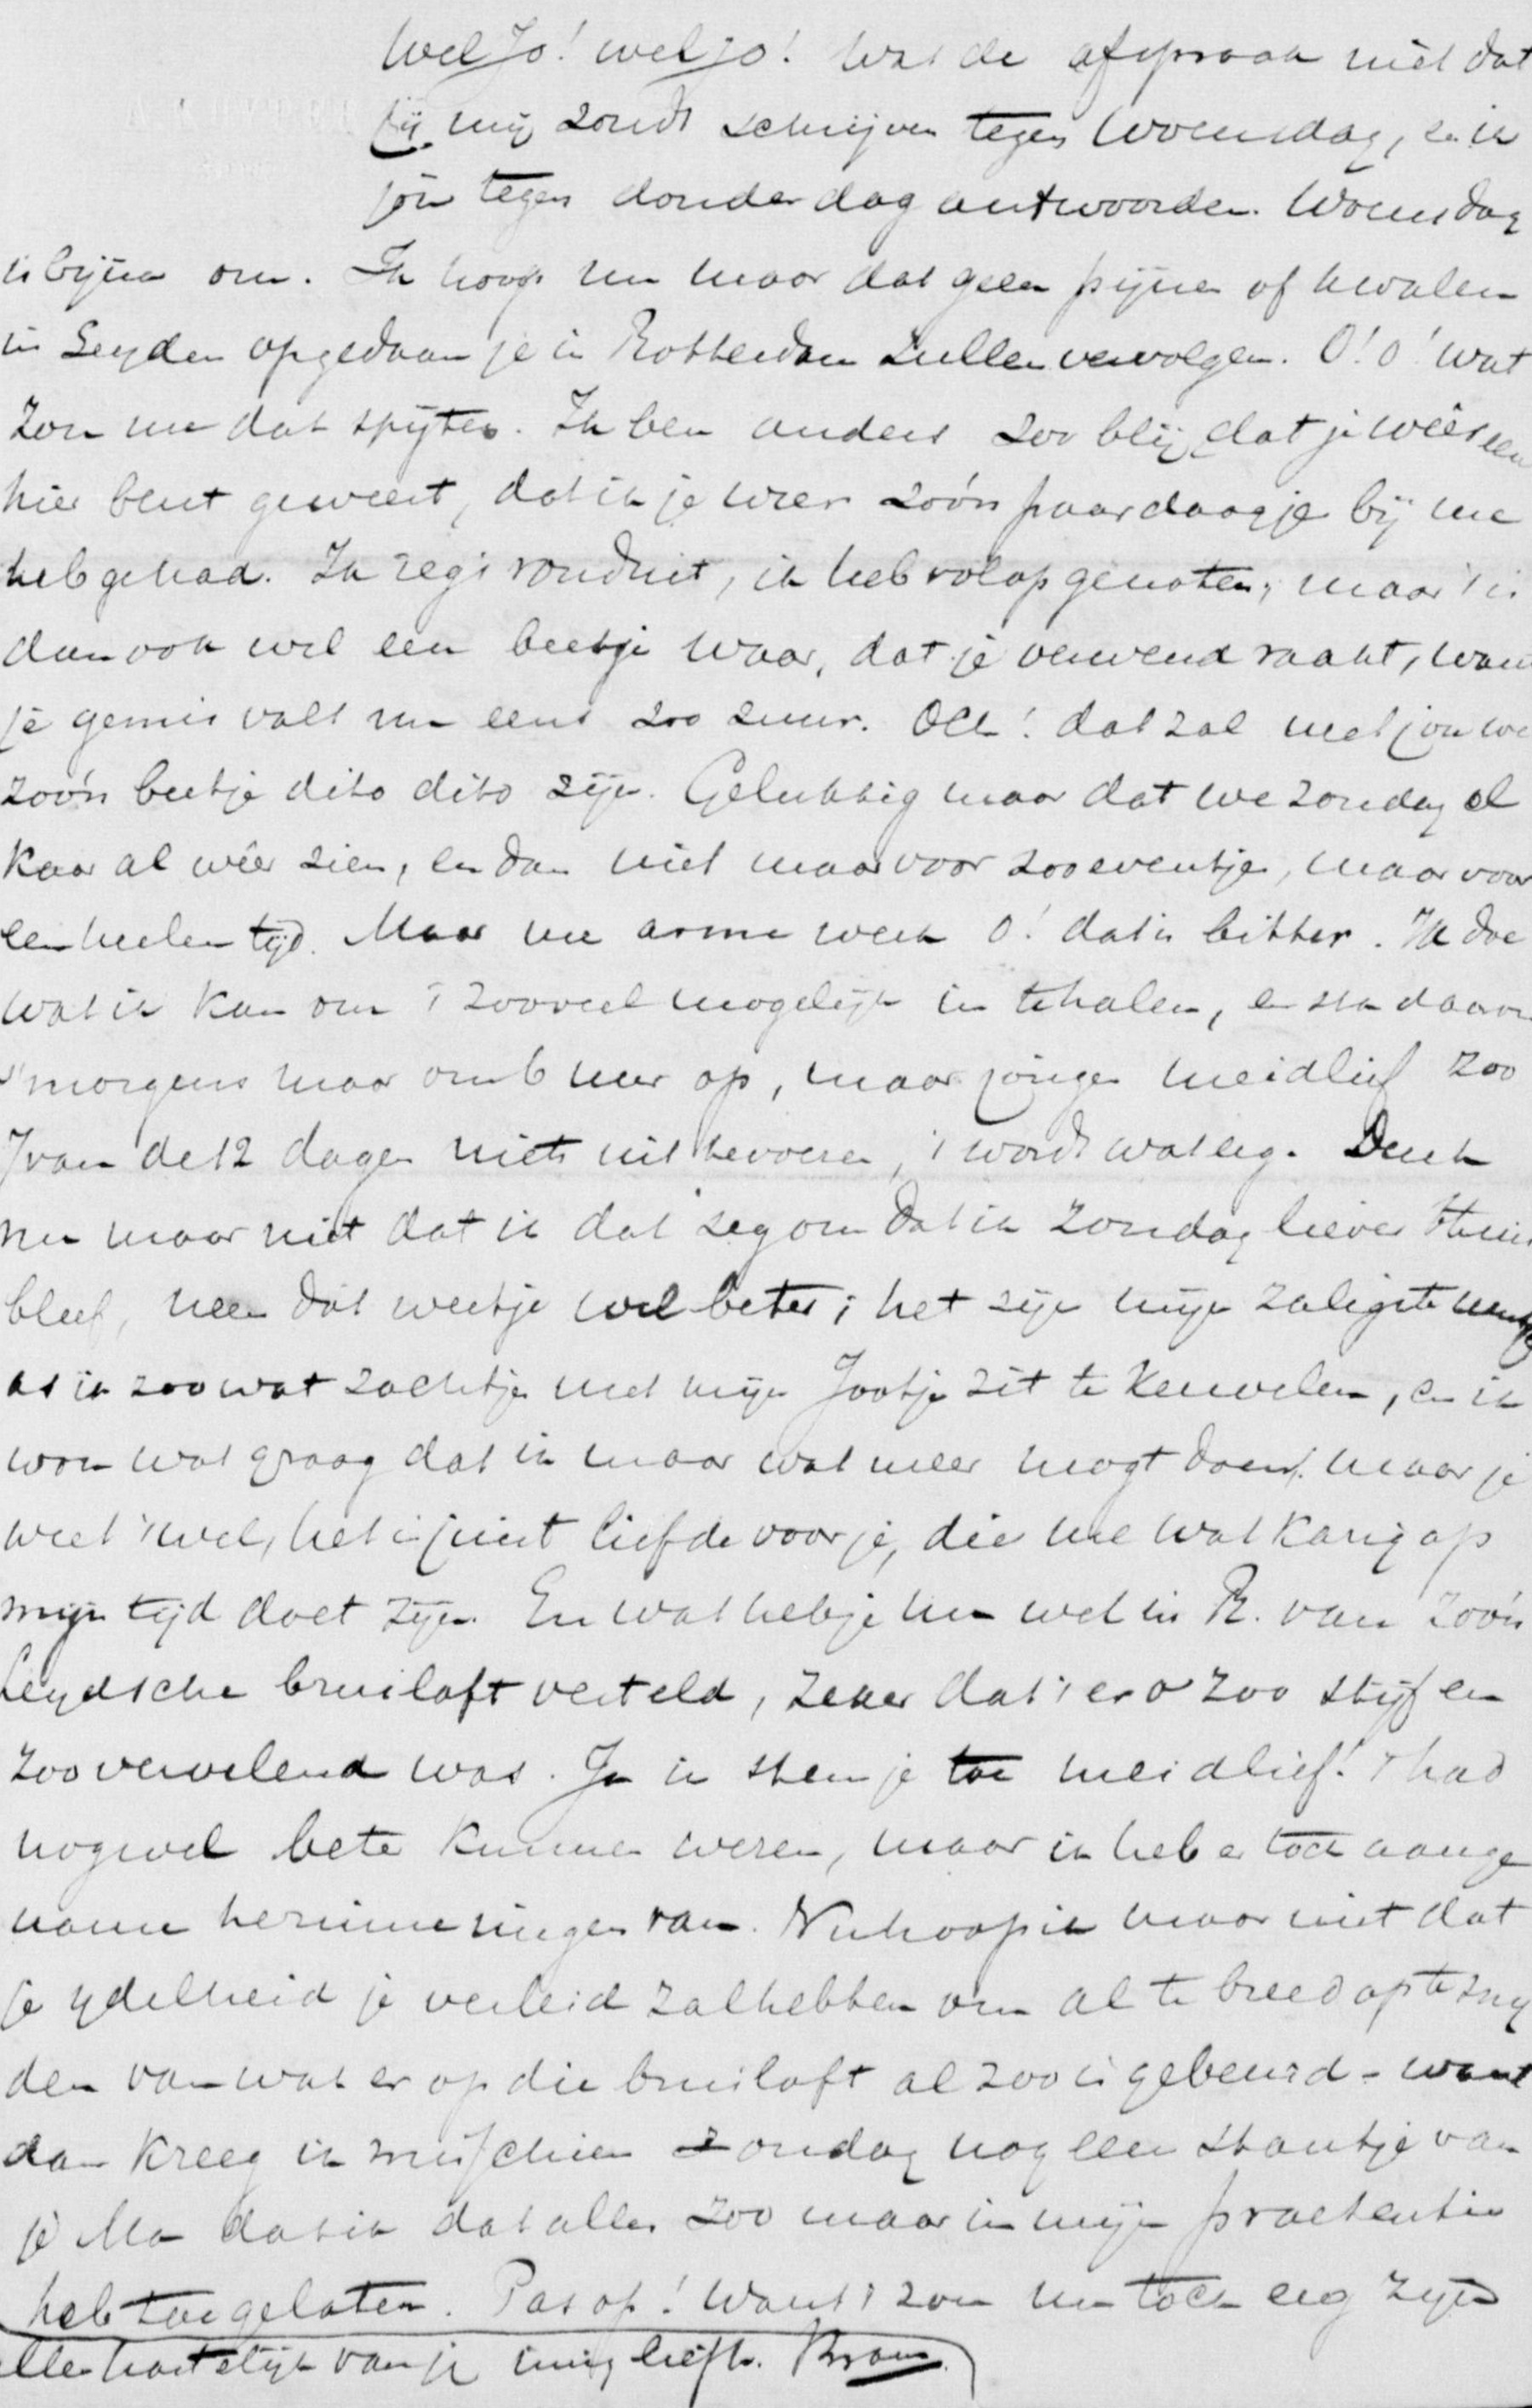 Wel Jo! wel jo! Was de afspraak niet dat
jij mij zoudt schrijven tegen Woensdag, en ik
jou tegen donderdag antwoorden. Woensdag
is bijna om. Ik hoop nu maar dat geen pijnen of kwalen
in Leyden opgedaan je in Rotterdam zullen vervolgen. O! o! wat
zou me dat spijten. Ik ben anders zoo blij dat je wéér een
hier bent geweest, dat ik je weer zóó'n paar daagje bij me
heb gehad. Ik zeg 't ronduit, ik heb volop genoten; maar 't is
dan ook wel een beetje waar, dat je verwend raakt, want
je gemis valt nu eens zoo zuur. Och! dat zal met jou we
zoo'n beetje dito dito zijn. Gelukkig maar dat we zondag el
kaar al wéér zien, en dan niet maar voor zoo eventjes, maar voor
een heelen tijd. Maar me arme werk O! dat is bitter. Ik doe
wat ik kan om 't zooveel mogelijk in te halen, en sta daarom
's morgens maar om 6 uur op, maar jonge meidlief zoo
7 van de 12 dagen niets uit te voeren, 't wordt wat erg. Denk
nu maar niet dat ik dat zeg om dat ik zondag liever thuis
bleef, neen dat weet je wel beter; het zijn mijn zaligste
as ik zoo wat zachtjes met mijn Jootje zit te keuvelen, en ik
wou wat graag dat ik maar wat meer mogt doen, maar je
weet 't wel, het is juist liefde voor je, die me wat karig op
mijn tijd doet zijn. En wat heb je nu wel in R. van zóó'n
Leydsche bruiloft verteld, zeker dat 't er o zoo stijf en
zoo vervelend was. Ja ik stem je toe meidlief! 't had
nog wel beter kunnen wezen, maar ik heb er toch aange
name herinneringen van. Nu hoop ik maar niet dat
je ydelheid je verleid zal hebben om al te breed op te sny
den van wat er op die bruiloft al zoo is gebeurd - want
dan kreeg ik misschien zondag nog een standje van
je Ma dat ik dat alles zoo maar in mijn praesentie
heb toegelaten. Pas op! Want 't zou me toch erg zijn
allerhartelijk van je innig liefh. Bram.